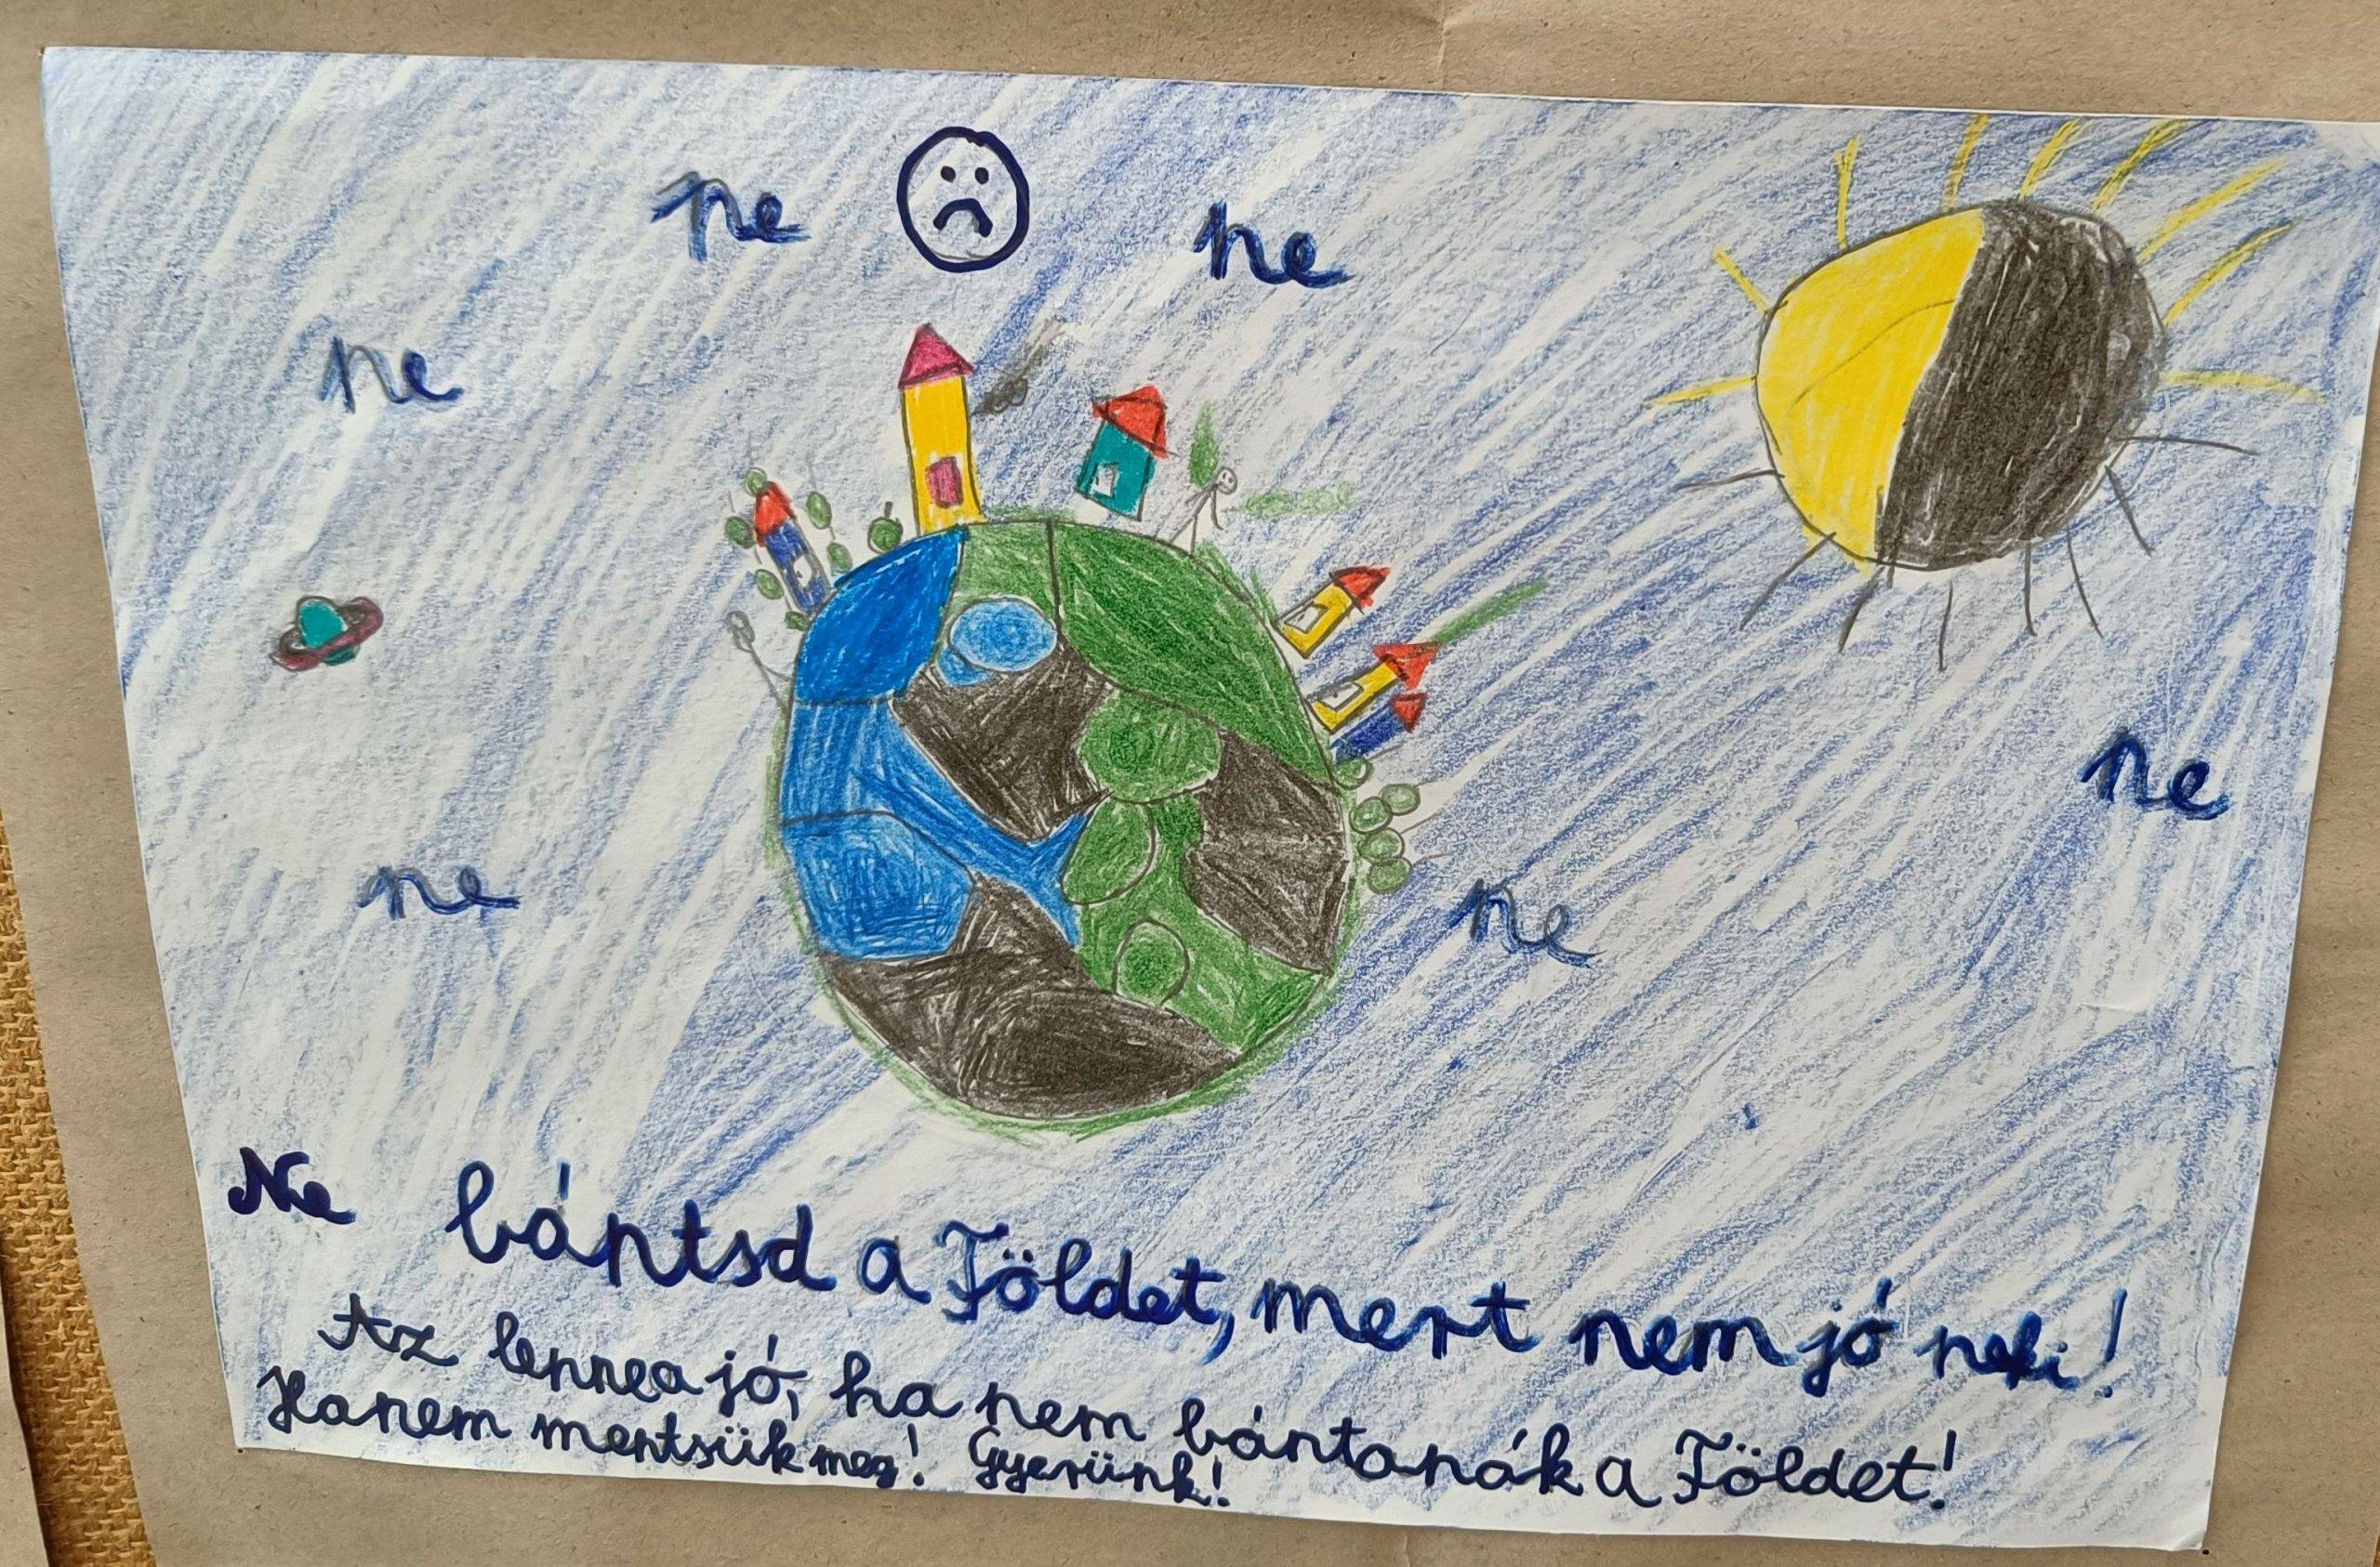 ne ne
ne
ne
ne
ne
Ne bántsd a Földet, mert nem jó neki!
Az lennea jó, ha nem bántanák a Földet!
Hanem mentsük meg! Gyerünk!